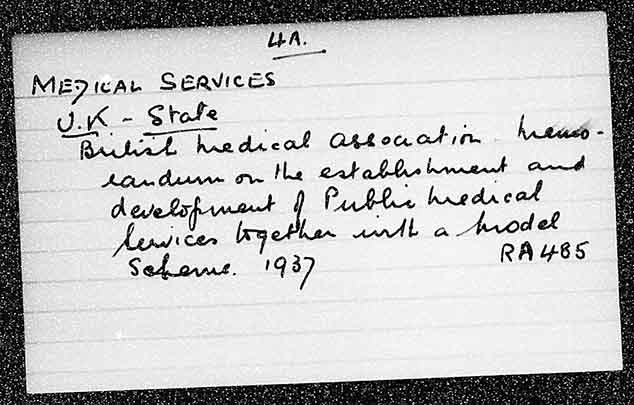 4A.
MEDICAL SERVICES
U.K - State
British Medical Association. Memo-
randum on the establishment and
development of Public Medical
Services together with a Model
Scheme. 1937 RA485